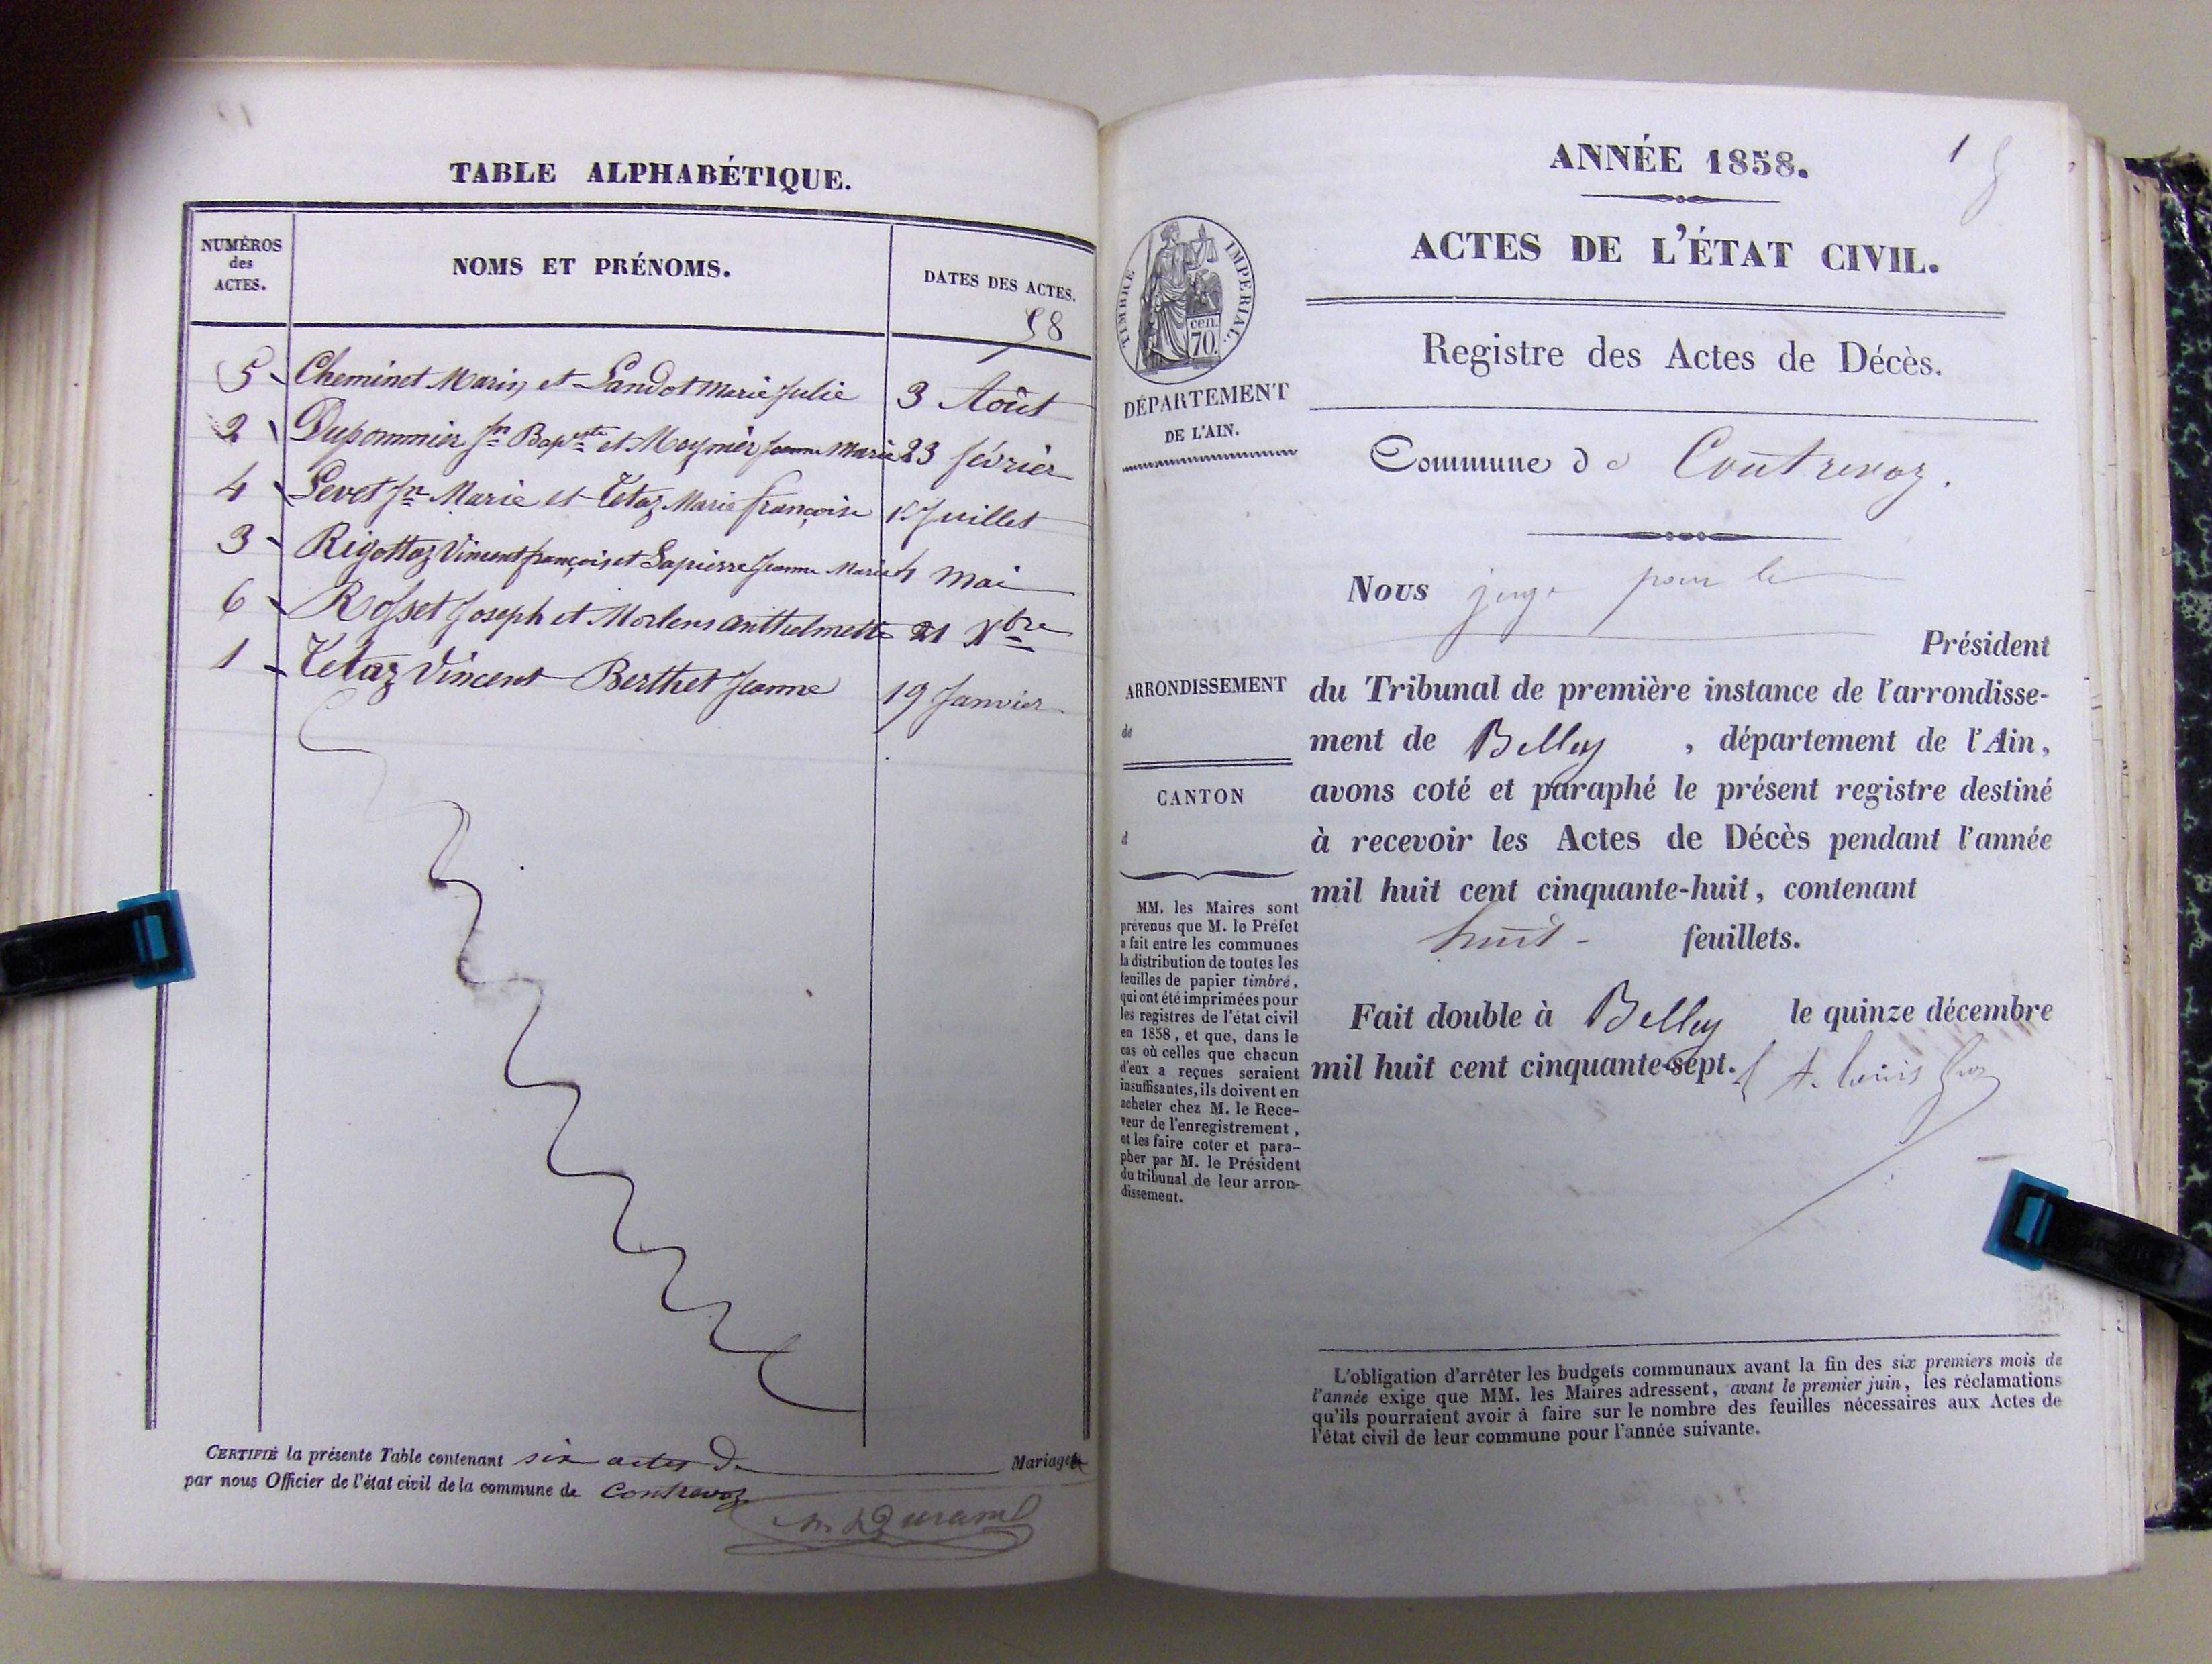 TABLE ALPHABÉTIQUE.
NUMÉROS
des
ACTES.
NOMS ET PRÉNOMS.
DATES DES ACTES.
58
5 Cheminet Marin et Landot Marie Julie 3 Août
2 Dupommier Jn Bapte et Moynier Jeanne Marie 23 février
4 Levet Jn Marie et Tétaz Marie françoise 1er Juillet
3 Rigottaz Vincent françois et Lapierre Jeanne Marie 4 Mai
6 Rosset Joseph et Morlens anthelmette 21 Xbre
1 Tétaz Vincent Berthet Jeanne 19 Janvier
CERTIFIÉ la présente Table contenant six actes de Mariage
par nous Officier de l'état civil de la commune de Contrevoz
Durand
1 8
ANNÉE 1858.
ACTES DE L'ÉTAT CIVIL.
Registre des Actes de Décès.
TIMBRE IMPÉRIAL.
cen.
70.
DÉPARTEMENT
DE L'AIN.
Commune de Contrevoz.
Nous juge pour le
Président
du Tribunal de première instance de l'arrondisse-
ment de Belley , département de l'Ain,
avons coté et paraphé le présent registre destiné
à recevoir les Actes de Décès pendant l'année
mil huit cent cinquante-huit, contenant
huit - feuillets.
Fait double à Belley le quinze décembre
mil huit cent cinquante-sept.
ARRONDISSEMENT
de
CANTON
d
MM. les Maires sont
prévenus que M. le Préfet
a fait entre les communes
la distribution de toutes les
feuilles de papier timbré,
qui ont été imprimées pour
les registres de l'état civil
en 1858, et que, dans le
cas où celles que chacun
d'eux a reçues seraient
insuffisantes, ils doivent en
acheter chez M. le Rece-
veur de l'enregistrement,
et les faire coter et para-
pher par M. le Président
du tribunal de leur arron-
dissement.
L'obligation d'arrêter les budgets communaux avant la fin des six premiers mois de
l'année exige que MM. les Maires adressent, avant le premier juin, les réclamations
qu'ils pourraient avoir à faire sur le nombre des feuilles nécessaires aux Actes de
l'état civil de leur commune pour l'année suivante.